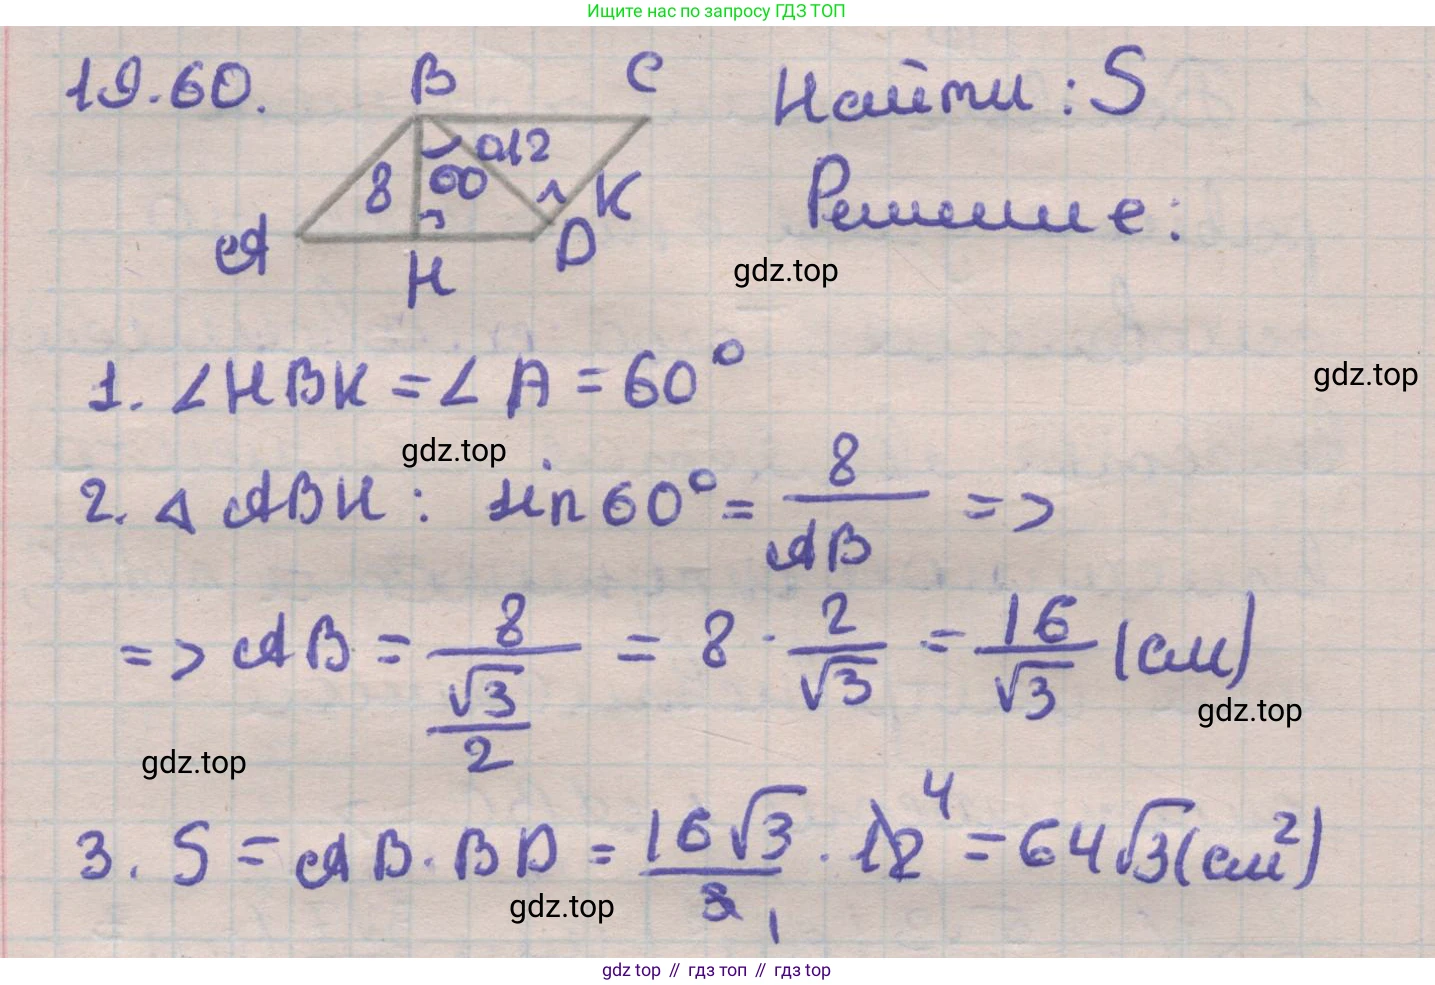 Ищите нас по запросу ГДЗ ТОП
19.60. B C Найти : S
8 60 12 K
A H D Решение :
gdz.top
1. ∠HBK = ∠A = 60°
gdz.top
gdz.top
2. △ ABH : sin 60° = 8/AB =>
=> AB = 8/(√3/2) = 8 · 2/√3 = 16/√3 (см)
gdz.top
gdz.top
3. S = AB · BD = 16√3/3 1 · 12 4 = 64√3 (см²)
gdz.top
gdz top // гдз топ // gdz top